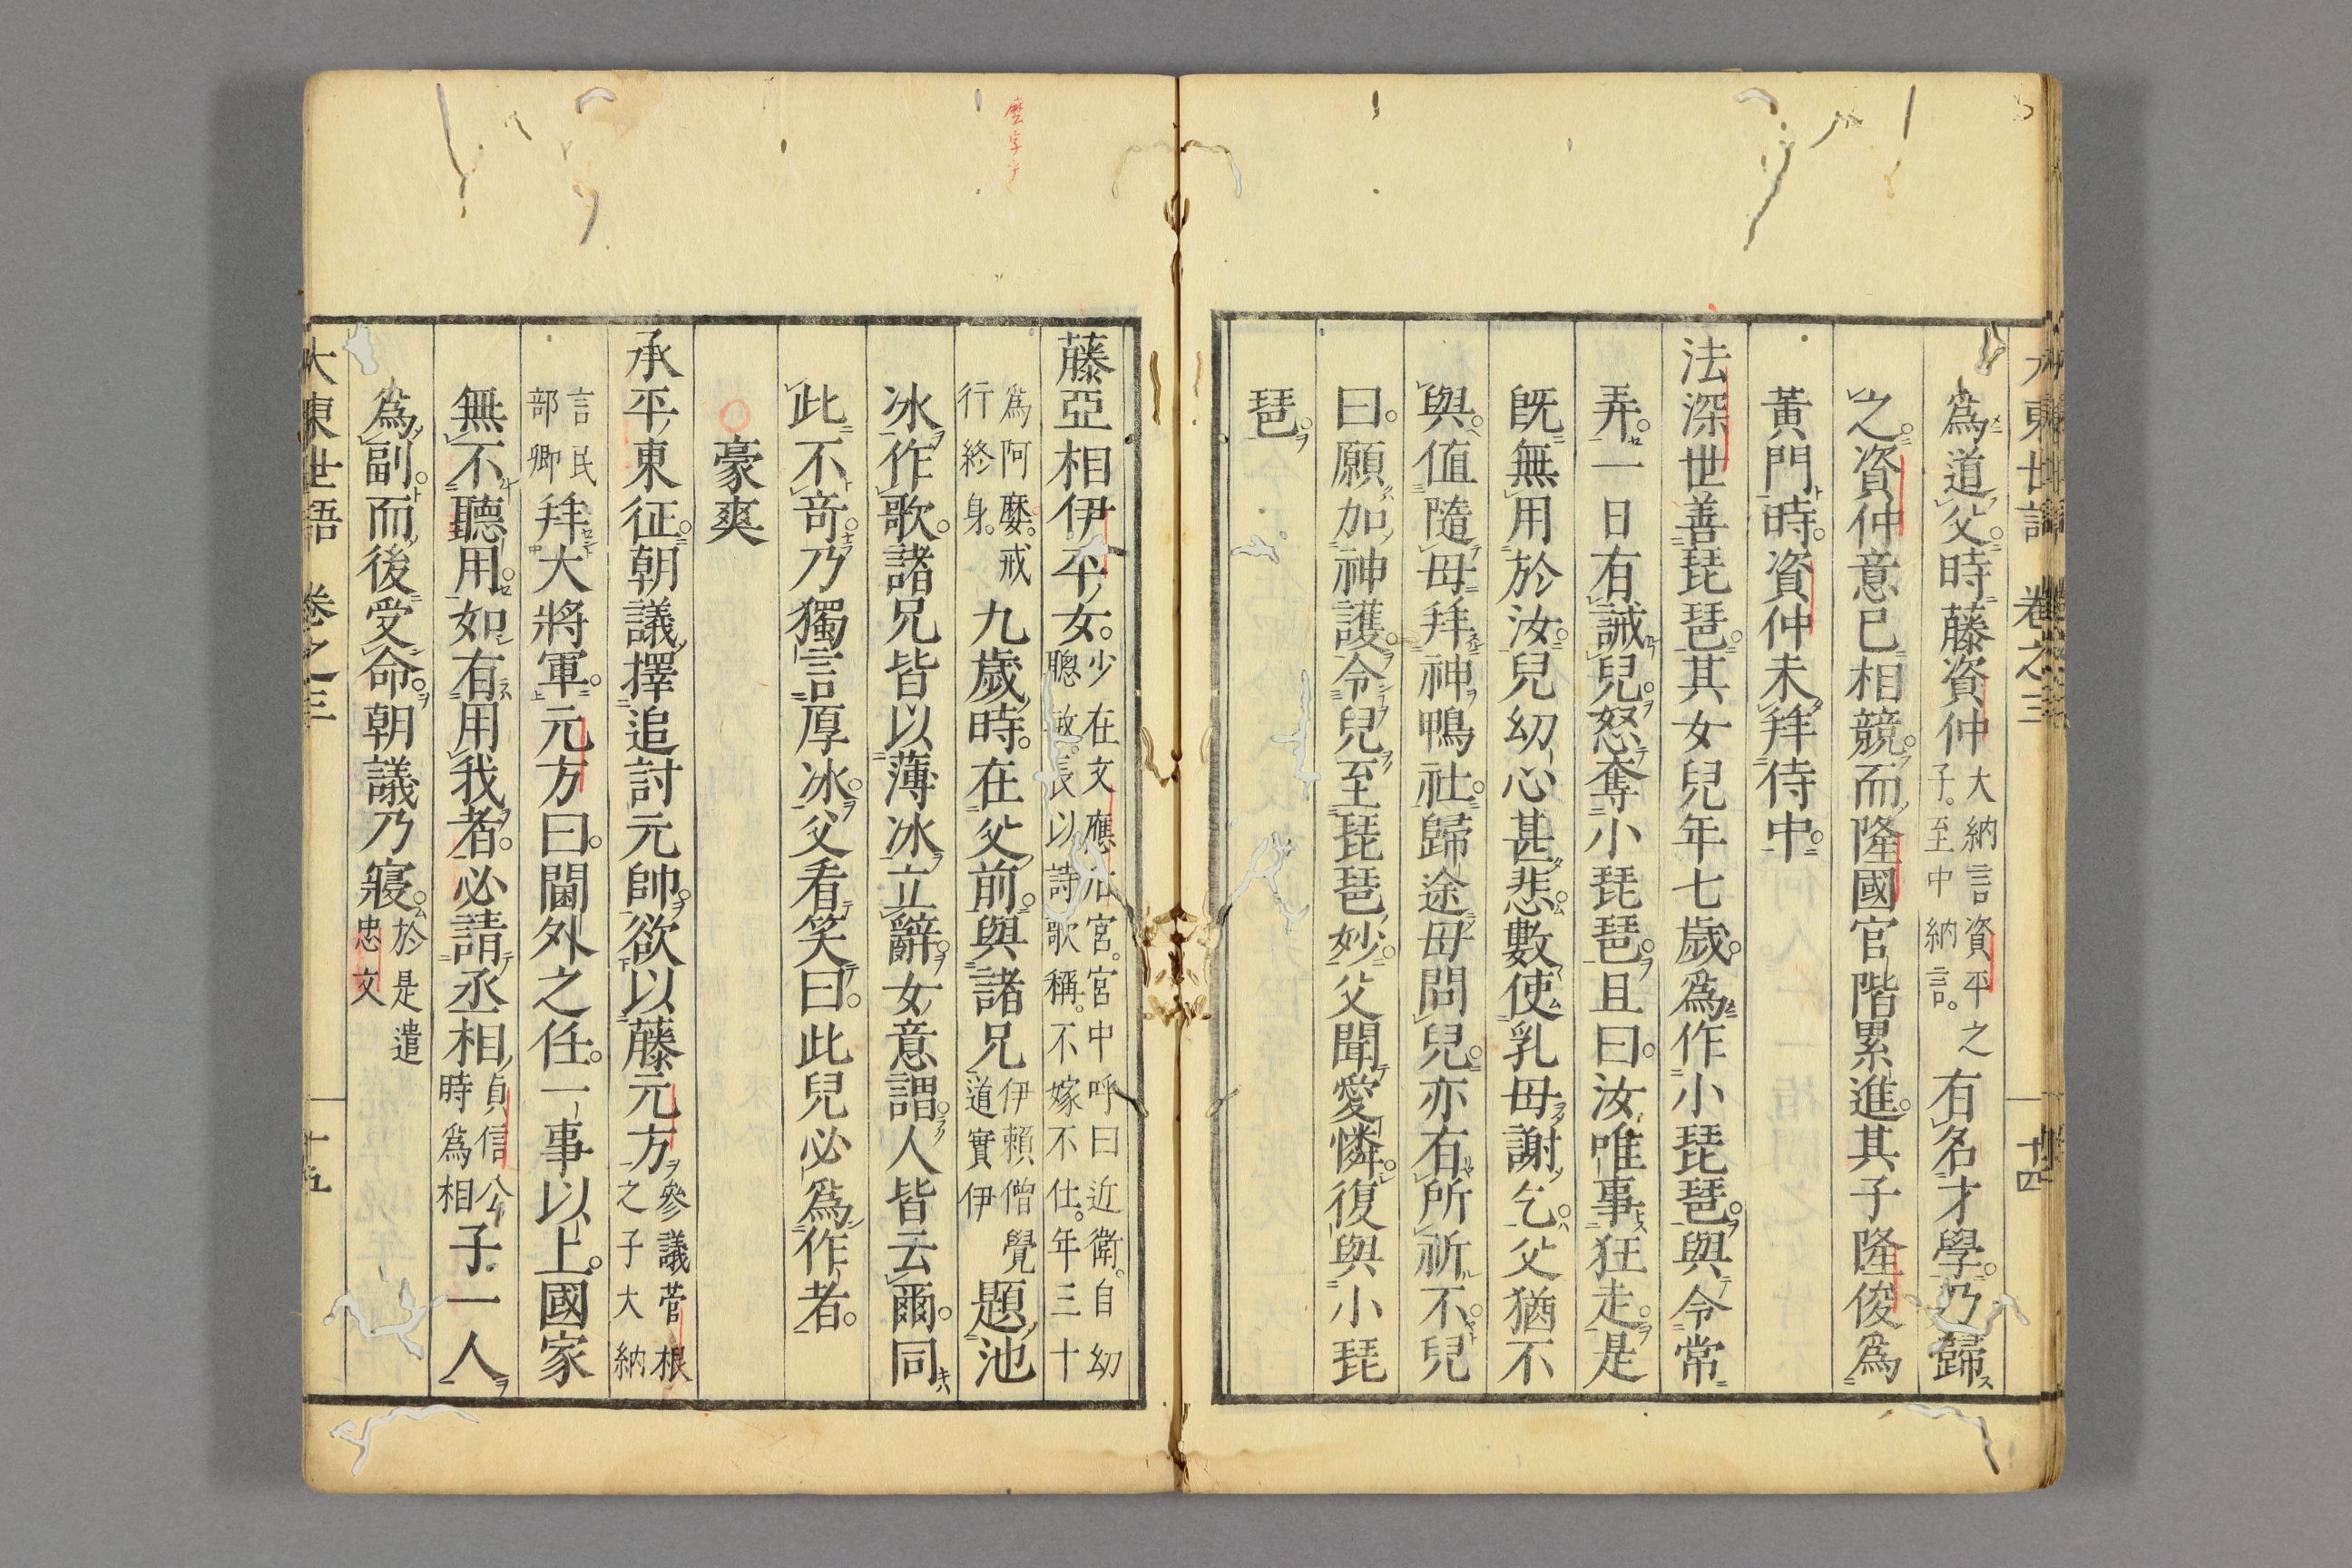 大東世語 卷之三 十四
爲道父時藤資仲大納言資平之子。至中納言。有名才學。乃歸
之。資仲意已相競。而隆國官階累進。其子隆俊爲
黃門時。資仲未拜侍中。
法深世善琵琶。其女兒年七歲。爲作小琵琶。與令常
弄。一日有誡。兒怒奪小琵琶。且曰。汝唯事狂走。是
既無用於汝。兒幼心甚悲。數使乳母謝乞。父猶不
與。値隨母拜神鴨社。歸途母問兒。亦有所祈不。兒
曰。願加神護。令兒至琵琶妙。父聞愛憐。復與小琵
琶。
麼字乎
藤亞相伊平女。少在文應元宮。宮中呼曰近衛。自幼聰敏。長以詩歌稱。不嫁不仕。年三十
爲阿麼。戒行終身。九歲時。在父前。與諸兄伊賴僧覺道實伊題池
冰作歌。諸兄皆以薄冰立辭。女意謂人皆云爾。同
此不奇。乃獨言厚冰。父看笑曰。此兒必爲作者。
豪爽
承平東征。朝議擇追討元帥。欲以藤元方參議菅根之子大納
言民部卿拜大將軍。元方曰。閫外之任。一事以上。國家
無不聽用。如有用我者。必請丞相貞信公時爲相子一人
爲副。而後受命。朝議乃寢。於是遣忠文
大東世語 卷之三 十五